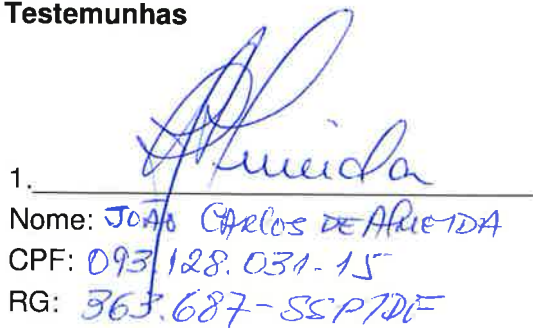 Testemunhas
Almeida
1.
Nome: JOÃO CARLOS DE ALMEIDA
CPF: 093.128.031-15
RG: 363.687-SSP/DF